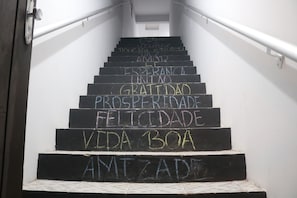 ESPERANÇA
UNIÃO
GRATIDÃO
PROSPERIDADE
FELICIDADE
VIDA BOA
AMIZADE